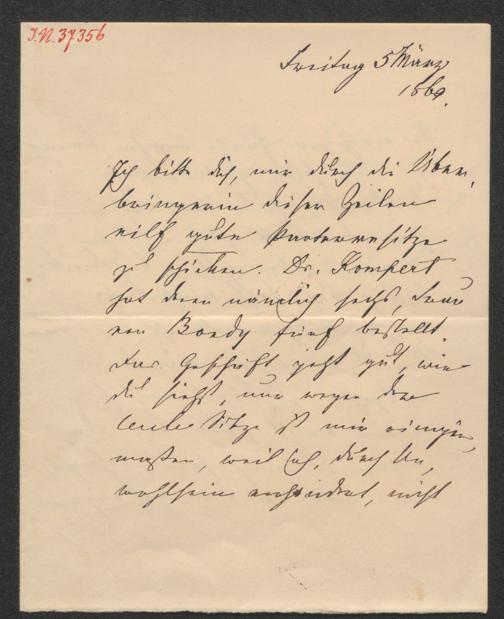 I.N. 37356
Freitag 5 März
1869.
Ich bitte dich, mir durch die Über,
bringerin dieser Zeilen
eilf gute Parterresitze
zu schicken. Dr. Kompert
hat deren nämlich sechs, Frau
von Boedy fünf bestellt.
Das Geschäft geht gut, wie
du siehst, nur wegen der
Cercle Sitze ist mir einiger,
maßen, weil ich, durch Un,
wohlsein verhindert, nicht